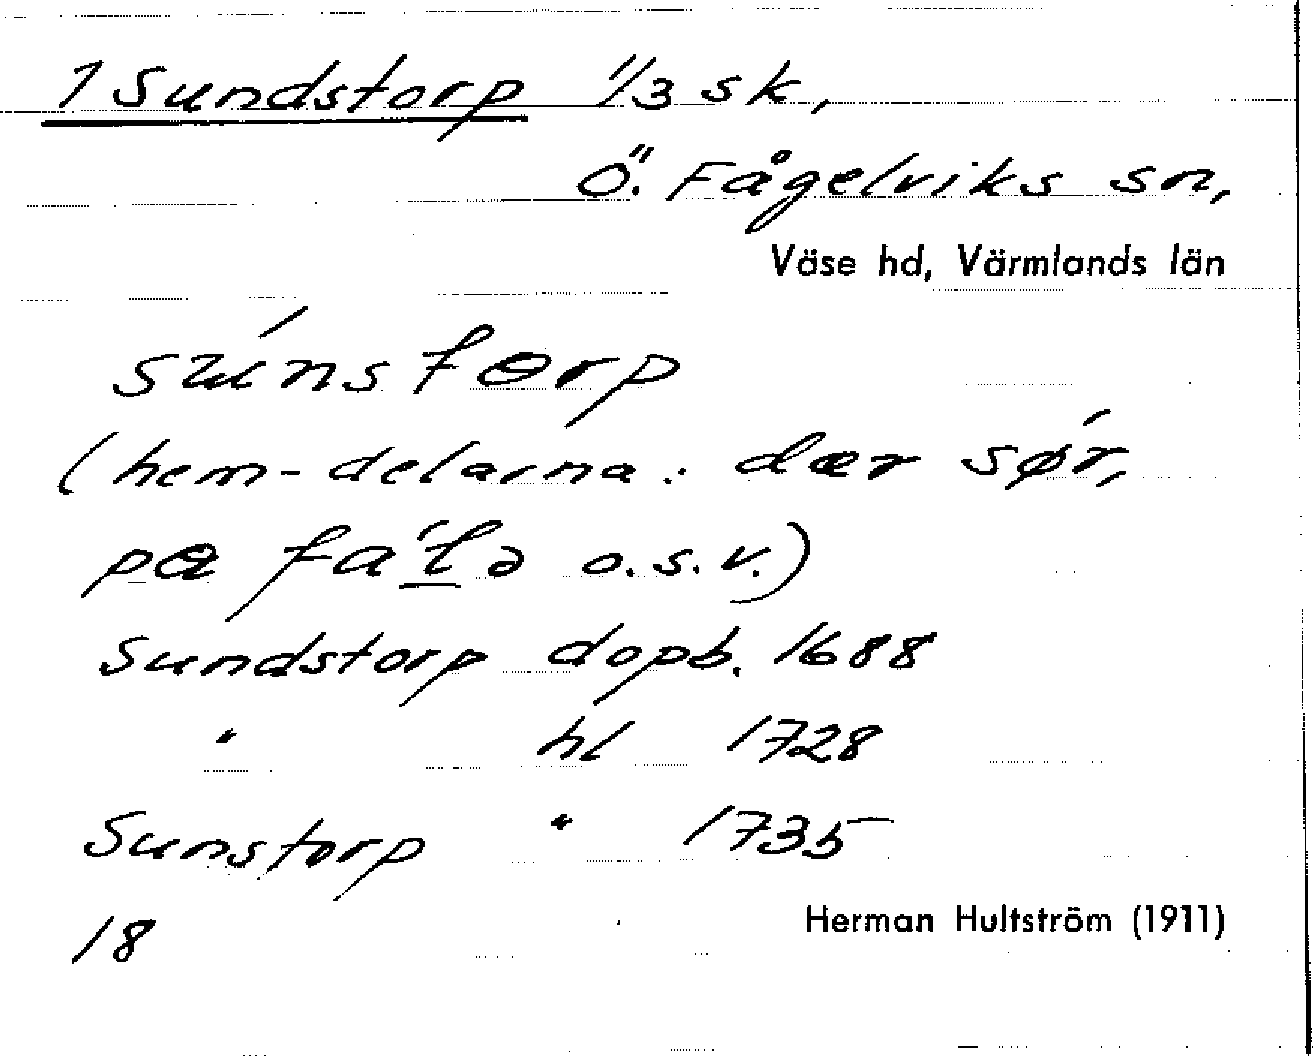 1 Sundstorp 1/3 sk,
Ö. Fågelviks sn,
Väse hd, Värmlands län
(hem-delarna: dær sør,
o.s.v.)
Sundstorp dopb. 1688
" hl 1728
Sunstorp " 1735
18
Herman Hultström (1911)